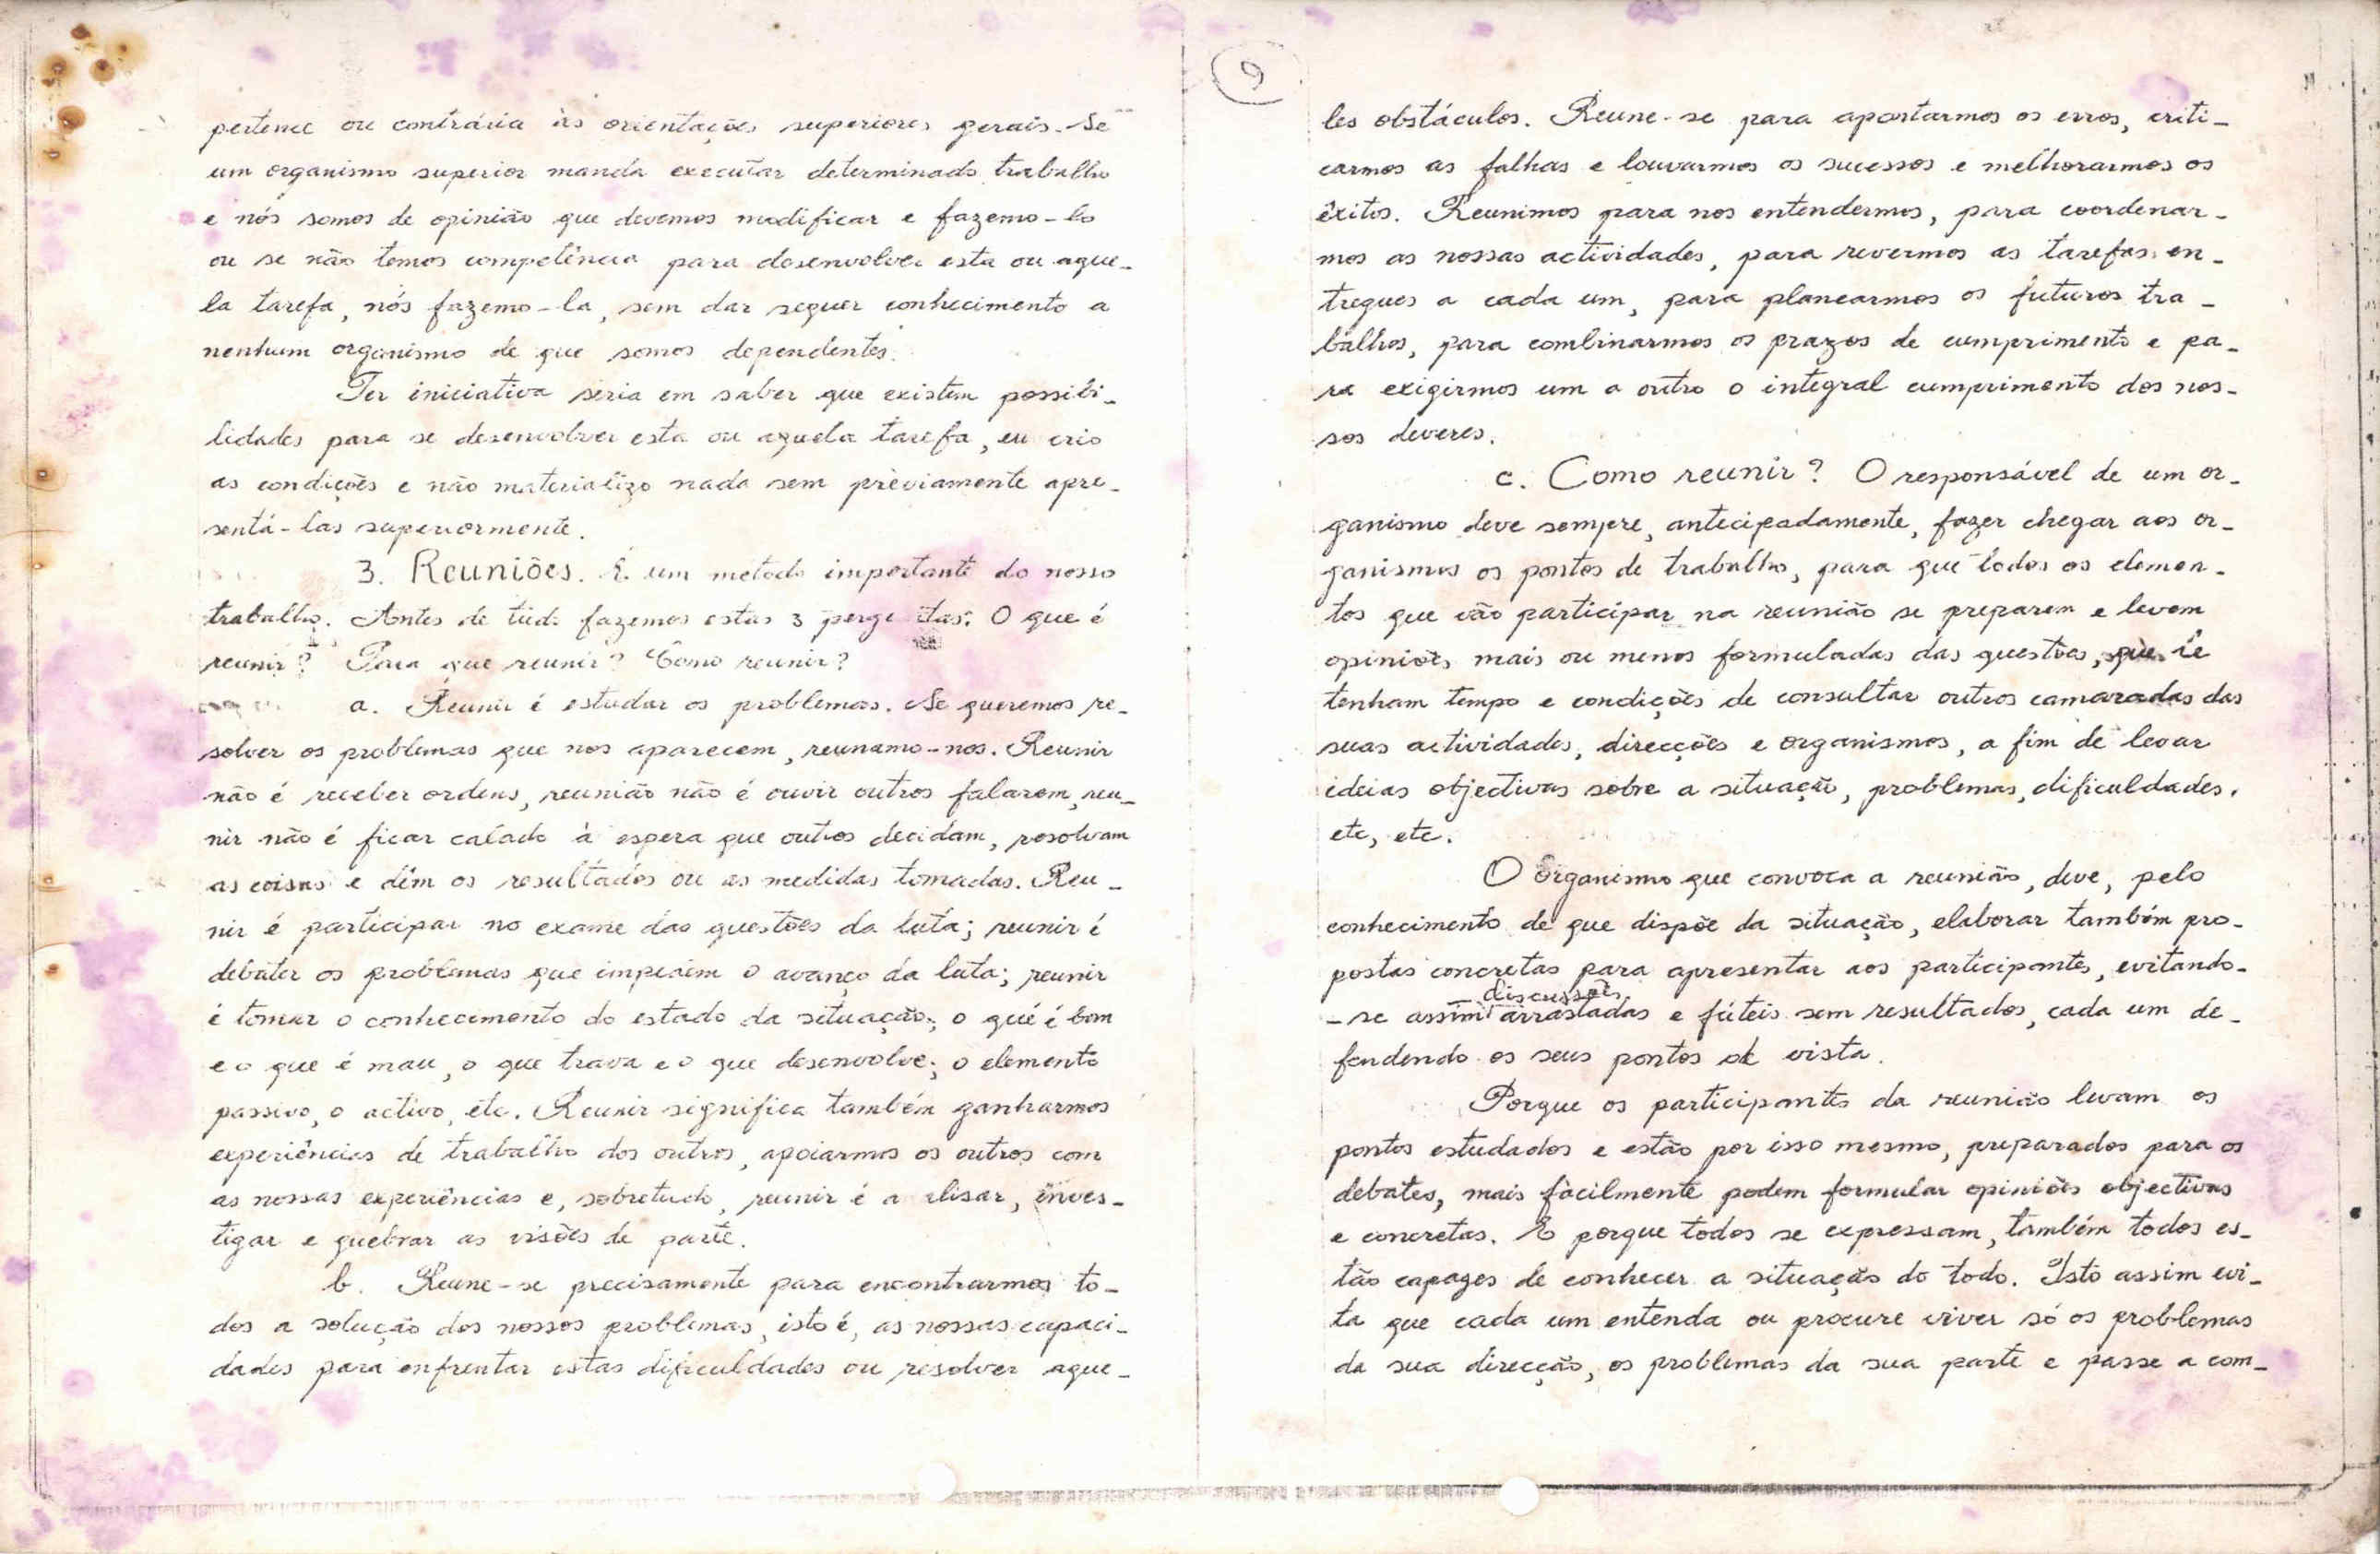 pertence ou contrária às orientações superiores gerais. Se
um organismo superior manda executar determinado trabalho
e nós somos de opinião que devemos modificar e fazemo-lo
ou se não temos competência para desenvolver esta ou aque-
la tarefa, nós fazemo-la, sem dar sequer conhecimento a
nenhum organismo de que somos dependentes.
Ter iniciativa seria em saber que existem possibi-
lidades para se desenvolver esta ou aquela tarefa, eu crio
as condições e não materializo nada sem prèviamente apre-
sentá-las superiormente.
3. Reuniões. É um metodo importante do nosso
trabalho. Antes de tudo fazemos estas 3 perguntas: O que é
reunir? Para que reunir? Como reunir?
a. Reunir é estudar os problemas. Se queremos re-
solver os problemas que nos aparecem, reunamo-nos. Reunir
não é receber ordens, reunião não é ouvir outros falarem, reu-
nir não é ficar calado à espera que outros decidam, resolvam
as coisas e dêm os resultados ou as medidas tomadas. Reu-
nir é participar no exame das questões da luta; reunir é
debater os problemas que impedem o avanço da luta; reunir
é tomar o conhecimento do estado da situação; o que é bom
e o que é mau, o que trava e o que desenvolve; o elemento
passivo, o activo, etc. Reunir significa também ganharmos
experiências de trabalho dos outros, apoiarmos os outros com
as nossas experiências e, sobretudo, reunir é analisar, inves-
tigar e quebrar as visões de parte.
b. Reune-se precisamente para encontrarmos to-
dos a solução dos nossos problemas, isto é, as nossas capaci-
dades para enfrentar estas dificuldades ou resolver aque-
9
les obstáculos. Reune-se para apontarmos os erros, criti-
carmos as falhas e louvarmos os sucessos e melhorarmos os
êxitos. Reunimos para nos entendermos, para coordenar-
mos as nossas actividades, para revermos as tarefas en-
tregues a cada um, para planearmos os futuros tra-
balhos, para combinarmos os prazos de cumprimento e pa-
ra exigirmos um a outro o integral cumprimento dos nos-
sos deveres.
c. Como reunir? O responsável de um or-
ganismo deve sempre, antecipadamente, fazer chegar aos or-
ganismos os pontos de trabalho, para que todos os elemen-
tos que vão participar na reunião se preparem e levem
opiniões mais ou menos formuladas das questões, que
tenham tempo e condições de consultar outros camaradas das
suas actividades, direcções e organismos, a fim de levar
ideias objectivas sobre a situação, problemas, dificuldades,
etc, etc.
O Organismo que convoca a reunião, deve, pelo
conhecimento de que dispõe da situação, elaborar também pro-
postas concretas para apresentar aos participantes, evitando-
-se assim discussões arrastadas e fúteis sem resultados, cada um de-
fendendo os seus pontos de vista.
Porque os participantes da reunião levam os
pontos estudados e estão por isso mesmo, preparados para os
debates, mais fàcilmente podem formular opiniões objectivas
e concretas. E porque todos se expressam, também todos es-
tão capazes de conhecer a situação do todo. Isto assim evi-
ta que cada um entenda ou procure viver só os problemas
da sua direcção, os problemas da sua parte e passe a com-